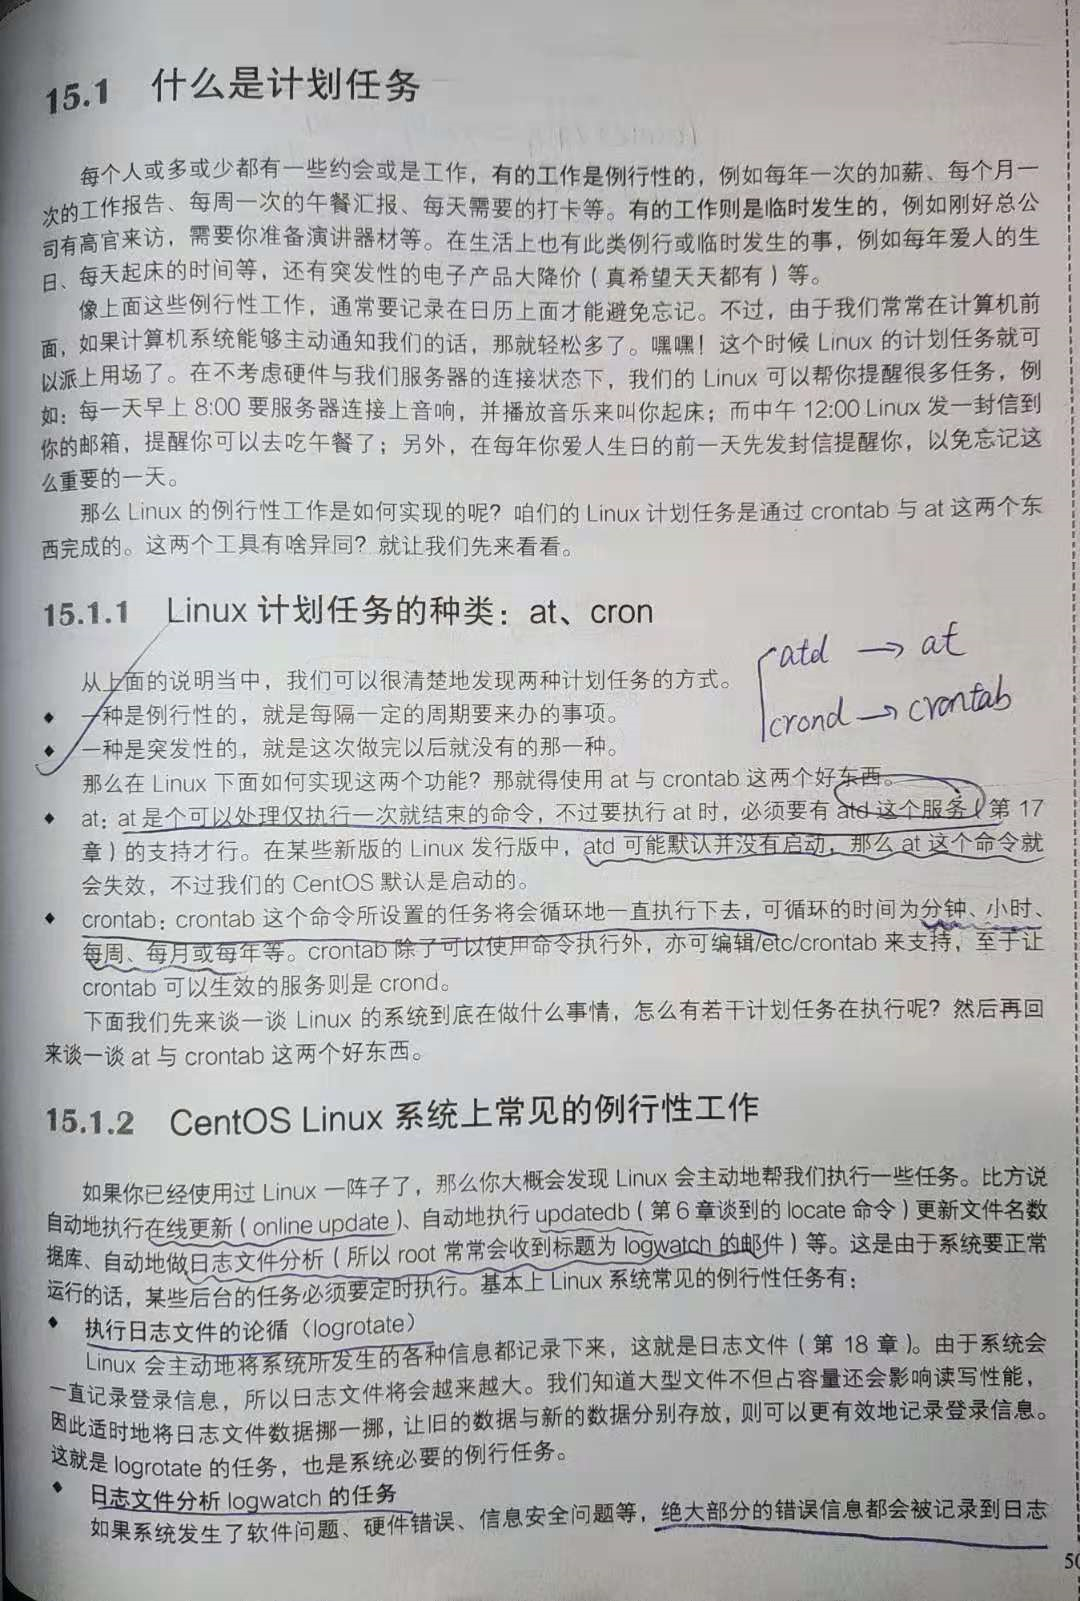 15.1 什么是计划任务
每个人或多或少都有一些约会或是工作，有的工作是例行性的，例如每年一次的加薪、每个月一
次的工作报告、每周一次的午餐汇报、每天需要的打卡等。有的工作则是临时发生的，例如刚好总公
司有高官来访，需要你准备演讲器材等。在生活上也有此类例行或临时发生的事，例如每年爱人的生
日、每天起床的时间等，还有突发性的电子产品大降价（真希望天天都有）等。
像上面这些例行性工作，通常要记录在日历上面才能避免忘记。不过，由于我们常常在计算机前
面，如果计算机系统能够主动通知我们的话，那就轻松多了。嘿嘿！这个时候 Linux 的计划任务就可
以派上用场了。在不考虑硬件与我们服务器的连接状态下，我们的 Linux 可以帮你提醒很多任务，例
如：每一天早上 8:00 要服务器连接上音响，并播放音乐来叫你起床；而中午 12:00 Linux 发一封信到
你的邮箱，提醒你可以去吃午餐了；另外，在每年你爱人生日的前一天先发封信提醒你，以免忘记这
么重要的一天。
那么 Linux 的例行性工作是如何实现的呢？咱们的 Linux 计划任务是通过 crontab 与 at 这两个东
西完成的。这两个工具有啥异同？就让我们先来看看。
15.1.1 Linux 计划任务的种类：at、cron
atd → at
crond → crontab
从上面的说明当中，我们可以很清楚地发现两种计划任务的方式。
◆ 一种是例行性的，就是每隔一定的周期要来办的事项。
◆ 一种是突发性的，就是这次做完以后就没有的那一种。
那么在 Linux 下面如何实现这两个功能？那就得使用 at 与 crontab 这两个好东西。
◆ at：at 是个可以处理仅执行一次就结束的命令，不过要执行 at 时，必须要有 atd 这个服务（第 17
章）的支持才行。在某些新版的 Linux 发行版中，atd 可能默认并没有启动，那么 at 这个命令就
会失效，不过我们的 CentOS 默认是启动的。
◆ crontab：crontab 这个命令所设置的任务将会循环地一直执行下去，可循环的时间为分钟、小时、
每周、每月或每年等。crontab 除了可以使用命令执行外，亦可编辑/etc/crontab 来支持，至于让
crontab 可以生效的服务则是 crond。
下面我们先来谈一谈 Linux 的系统到底在做什么事情，怎么有若干计划任务在执行呢？然后再回
来谈一谈 at 与 crontab 这两个好东西。
15.1.2 CentOS Linux 系统上常见的例行性工作
如果你已经使用过 Linux 一阵子了，那么你大概会发现 Linux 会主动地帮我们执行一些任务。比方说
自动地执行在线更新（online update）、自动地执行 updatedb（第 6 章谈到的 locate 命令）更新文件名数
据库、自动地做日志文件分析（所以 root 常常会收到标题为 logwatch 的邮件）等。这是由于系统要正常
运行的话，某些后台的任务必须要定时执行。基本上 Linux 系统常见的例行性任务有：
◆ 执行日志文件的论循（logrotate）
Linux 会主动地将系统所发生的各种信息都记录下来，这就是日志文件（第 18 章）。由于系统会
一直记录登录信息，所以日志文件将会越来越大。我们知道大型文件不但占容量还会影响读写性能，
因此适时地将日志文件数据挪一挪，让旧的数据与新的数据分别存放，则可以更有效地记录登录信息。
这就是 logrotate 的任务，也是系统必要的例行任务。
◆ 日志文件分析 logwatch 的任务
如果系统发生了软件问题、硬件错误、信息安全问题等，绝大部分的错误信息都会被记录到日志